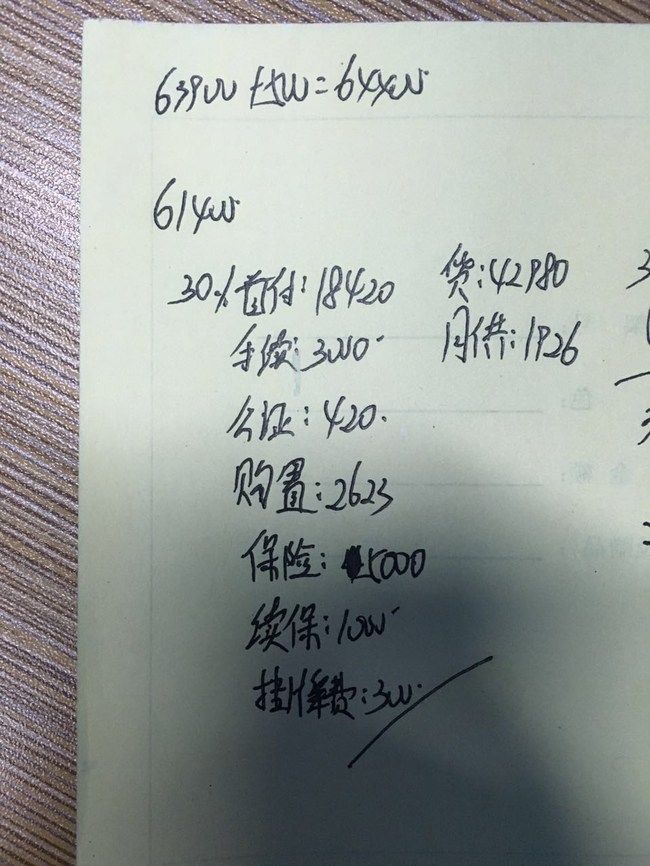 63900 + 500 = 64400
61400
30% 首付: 18420 贷: 42980
手续: 3000 月供: 1926
公证: 420.
购置: 2623
保险: 5000
续保: 1000
挂牌费: 300